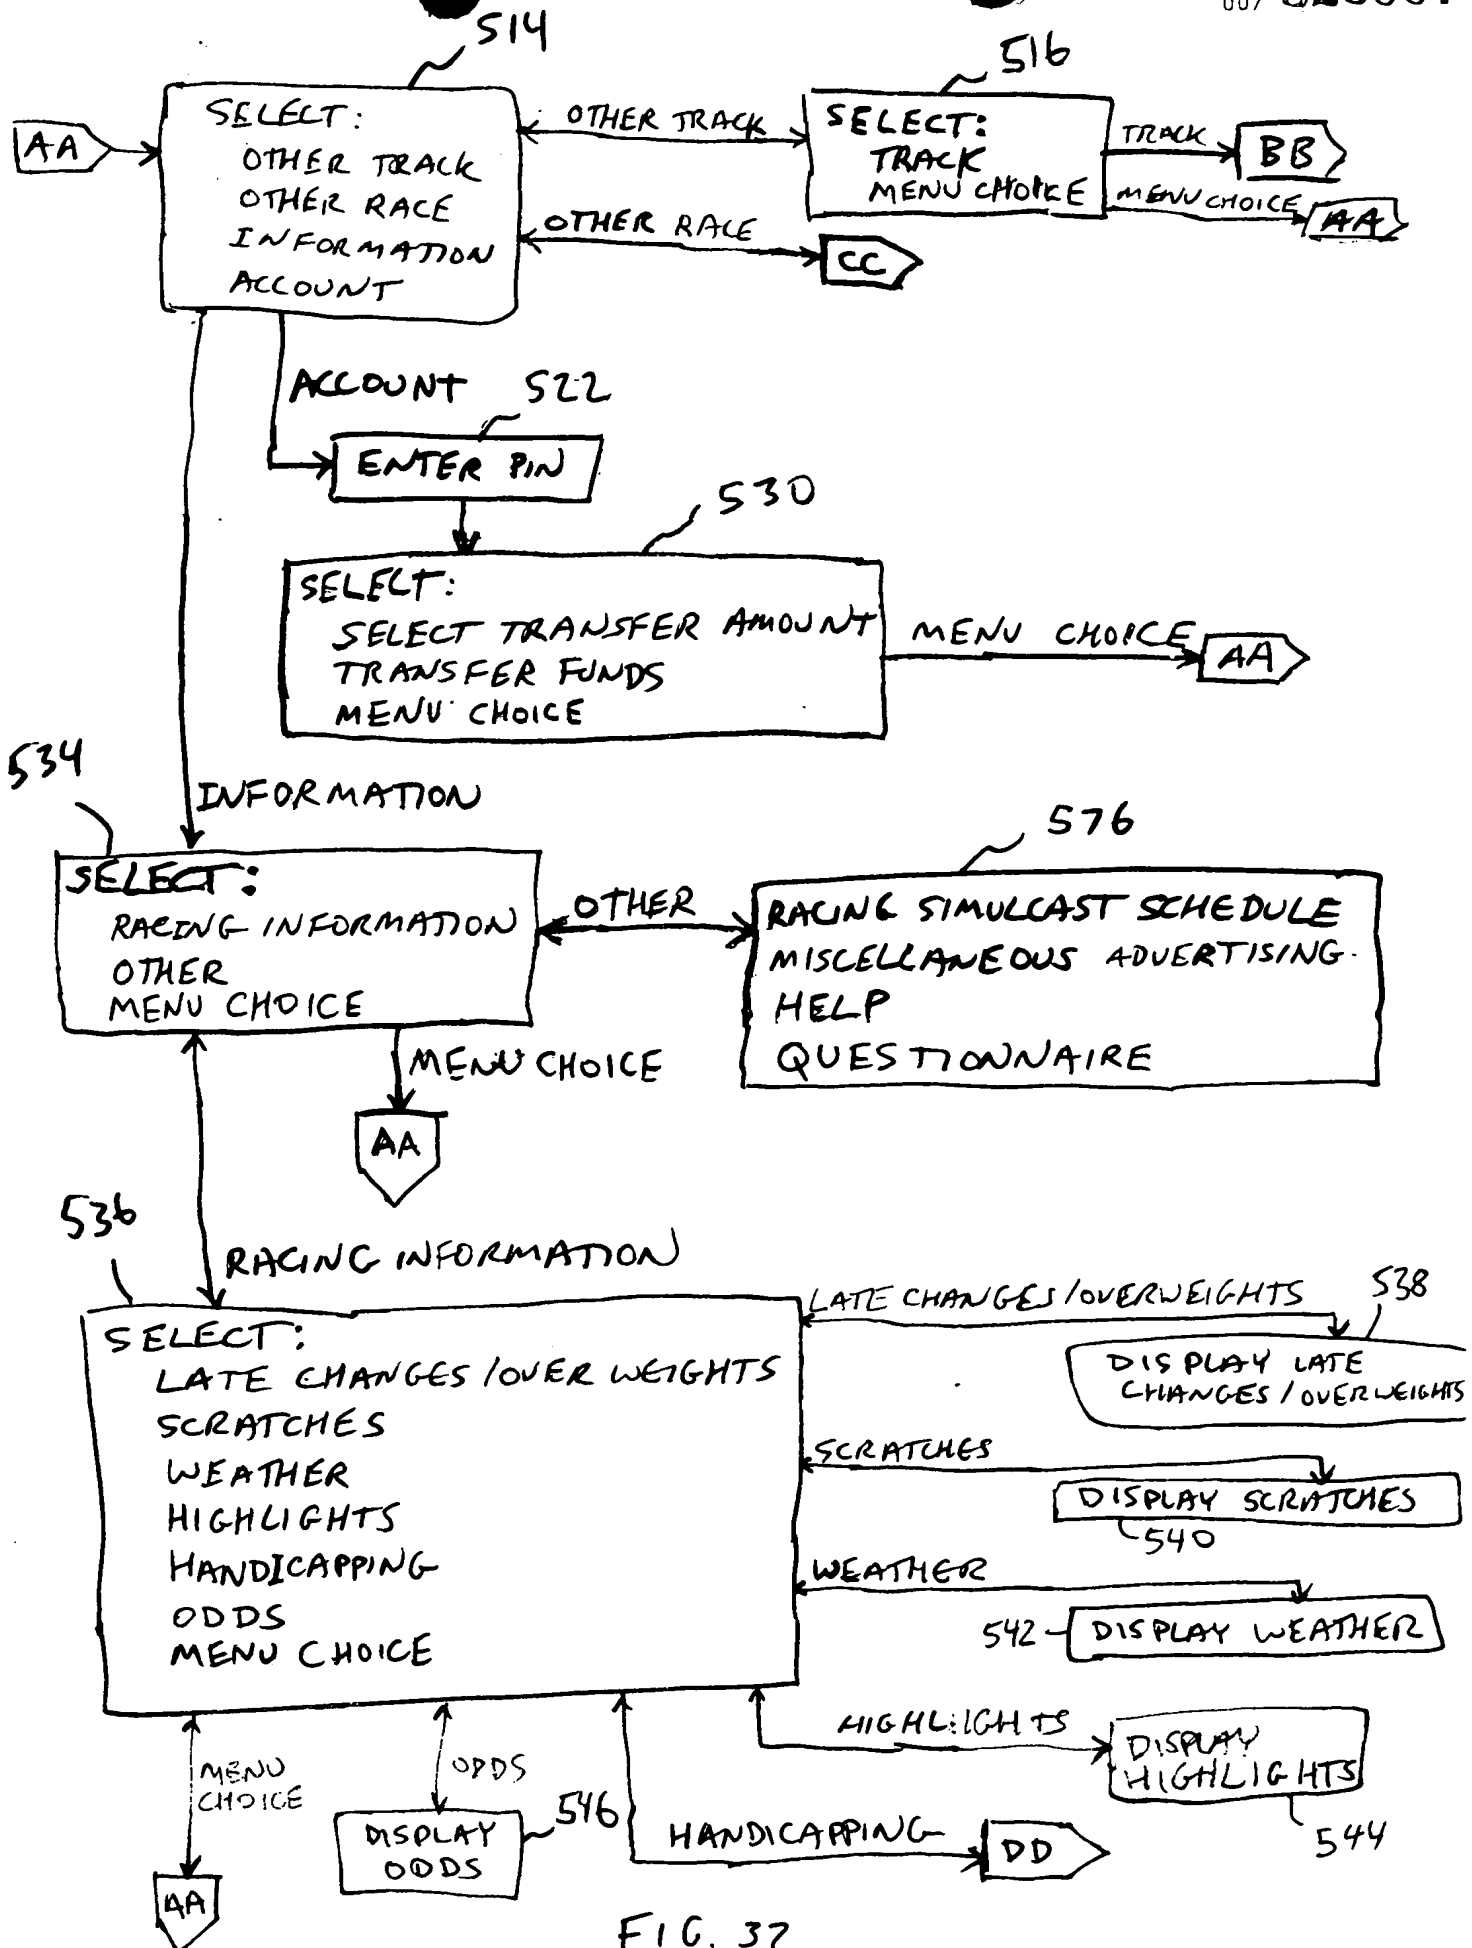 514
516
AA
SELECT:
OTHER TRACK
OTHER RACE
INFORMATION
ACCOUNT
OTHER TRACK
SELECT:
TRACK
MENU CHOICE
TRACK
BB
MENU CHOICE
AA
OTHER RACE
CC
ACCOUNT
522
ENTER PIN
530
SELECT:
SELECT TRANSFER AMOUNT
TRANSFER FUNDS
MENU CHOICE
MENU CHOICE
AA
534
INFORMATION
576
SELECT:
RACING INFORMATION
OTHER
MENU CHOICE
OTHER
RACING SIMULCAST SCHEDULE
MISCELLANEOUS ADVERTISING
HELP
QUESTIONNAIRE
MENU CHOICE
AA
536
RACING INFORMATION
SELECT:
LATE CHANGES/OVER WEIGHTS
SCRATCHES
WEATHER
HIGHLIGHTS
HANDICAPPING
ODDS
MENU CHOICE
LATE CHANGES/OVERWEIGHTS
538
DISPLAY LATE
CHANGES/OVERWEIGHTS
SCRATCHES
DISPLAY SCRATCHES
540
WEATHER
542
DISPLAY WEATHER
HIGHLIGHTS
DISPLAY
HIGHLIGHTS
544
MENU
CHOICE
AA
ODDS
DISPLAY
ODDS
546
HANDICAPPING
DD
FIG. 37